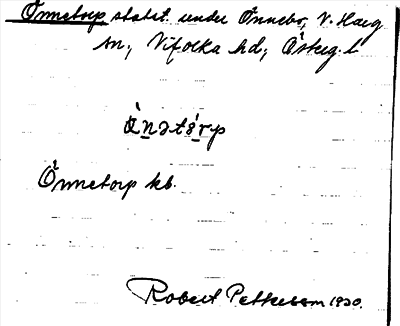 Önnetorp statet. under Önnebo, V. Harg
sn, Vifolka hd, Östeg. l.
Önnetorp kb.
Robert Pettersson 1930.